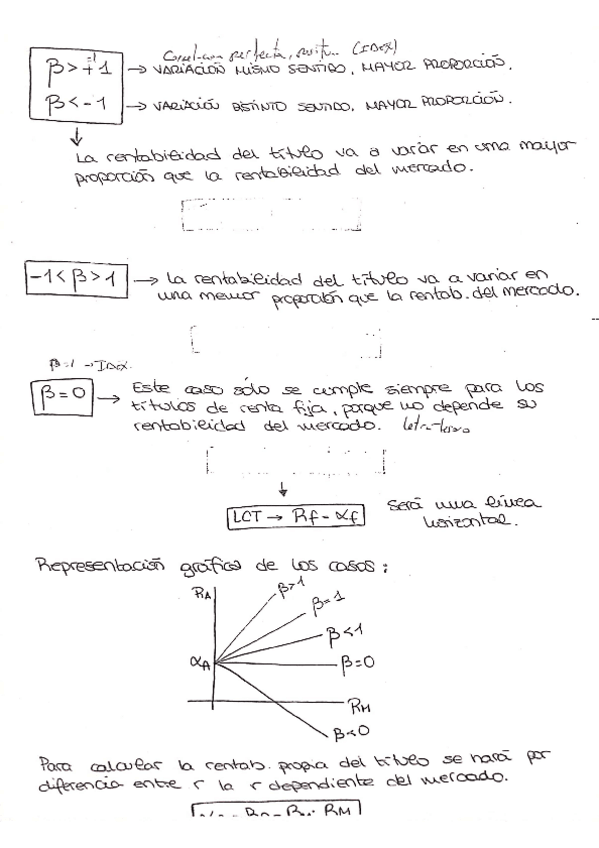 =1 Correlación perfecta, posit... (IBEX)
β > +1 → VARIACIÓN MISMO SENTIDO, MAYOR PROPORCIÓN.
β < -1 → VARIACIÓN DISTINTO SENTIDO, MAYOR PROPORCIÓN.
La rentabilidad del título va a variar en una mayor
proporción que la rentabilidad del mercado.
-1 < β > 1 → La rentabilidad del título va a variar en
una menor proporción que la rentab. del mercado.
β=1 → IBEX
β = 0 → Este caso sólo se cumple siempre para los
títulos de renta fija, porque no depende su
rentabilidad del mercado.
LCT → Rf - αf Será una línea
horizontal.
Representación gráfica de los casos:
RA β>1
β=1
β<1
αA β=0
RM
β<0
Para calcular la rentab. propia del título se hará por
diferencia entre r la r dependiente del mercado.
RM